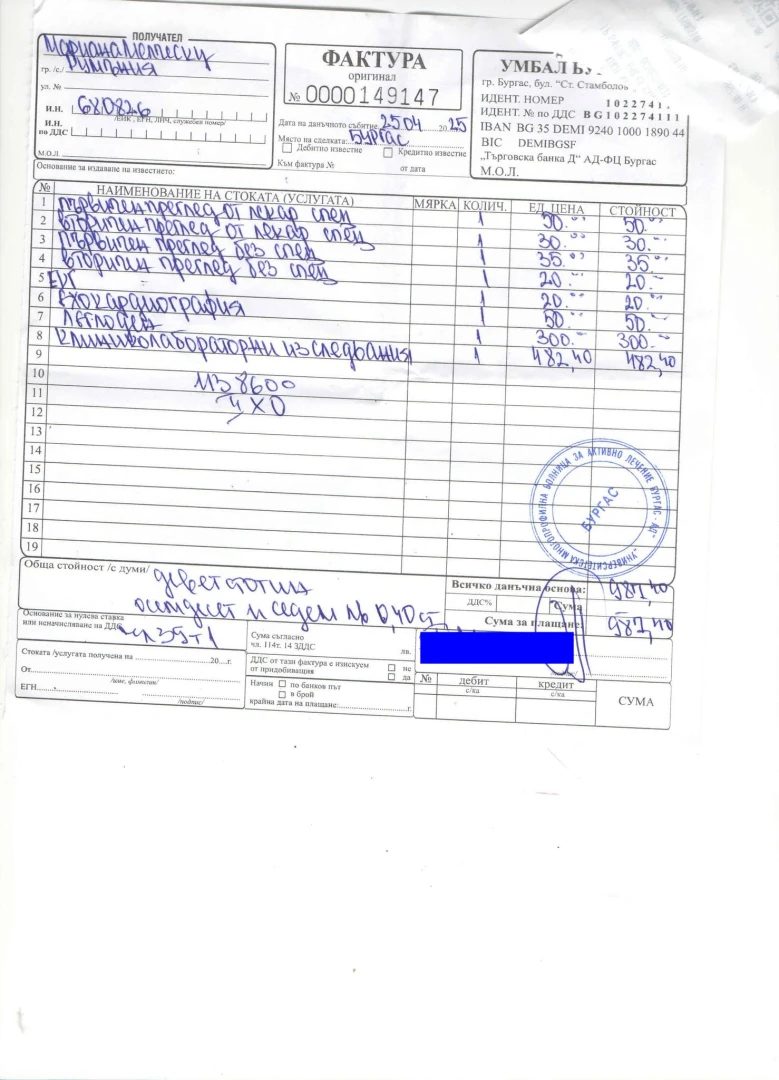 ПОЛУЧАТЕЛ
Румъния
гр. /с./
ул. №
И.Н. 680826
/ЕИК, ЕГН, ЛНЧ, служебен номер/
И.Н.
по ДДС
М.О.Л
Основание за издаване на известието:
ФАКТУРА
оригинал
№ 0000149147
Дата на данъчното събитие 25.04 2025
Място на сделката: Бургас
Дебитно известие Кредитно известие
Към фактура № от дата
УМБАЛ
гр. Бургас, бул. "Ст. Стамболов
ИДЕНТ. НОМЕР 1022741
ИДЕНТ. № по ДДС BG102274111
IBAN BG 35 DEMI 9240 1000 1890 44
BIC DEMIBGSF
„Търговска банка Д“ АД-ФЦ Бургас
М.О.Л.
№ НАИМЕНОВАНИЕ НА СТОКАТА (УСЛУГАТА) МЯРКА КОЛИЧ. ЕД. ЦЕНА СТОЙНОСТ
1 първичен преглед от лекар спец 1 50.00 50.-
2 вторичен преглед от лекар спец 1 30.00 30.-
3 първичен преглед без спец 1 35.00 35.-
4 вторичен преглед без спец 1 20.- 20.-
5 ЕКГ 1 20.00 20.-
6 Ехокардиография 1 50.- 50.-
7 Леглоден 1 300.- 300.-
8 Клиниколабораторни изследвания 1 482,40 482,40
9
10
ИЗ 8600
11
12
13
14
15
16
17
18
19
"УНИВЕРСИТЕТСКА МНОГОПРОФИЛНА БОЛНИЦА ЗА АКТИВНО ЛЕЧЕНИЕ БУРГАС" АД
БУРГАС
Обща стойност /с думи/ деветстотин
осемдесет и седем лв 0,40 ст
Всичко данъчна основа: 987,40
ДДС% Сума
Сума за плащане: 987,40
Основание за нулева ставка
или неначисляване на ДДС чл 39 т1
Стоката /услугата получена на 20 г.
От
/име, фамилия/
ЕГН
/подпис/
Сума съгласно
чл. 114т. 14 ЗДДС лв.
ДДС от тази фактура е изискуем
от придобиващия не
да
Начин по банков път
в брой
крайна дата на плащане: г.
№ дебит кредит СУМА
с/ка с/ка